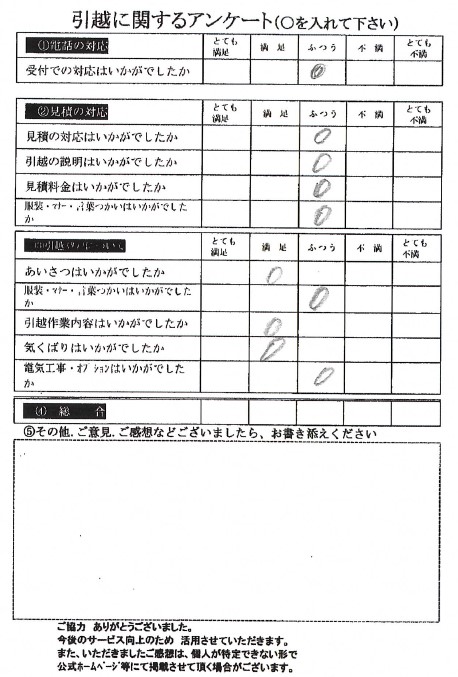 引越に関するアンケート(○を入れて下さい)
①電話の対応 とても満足 満足 ふつう 不満 とても不満
受付での対応はいかがでしたか
②見積の対応 とても満足 満足 ふつう 不満 とても不満
見積の対応はいかがでしたか
引越の説明はいかがでしたか
見積料金はいかがでしたか
服装・マナー・言葉つかいはいかがでしたか
とても満足 満足 ふつう 不満 とても不満
あいさつはいかがでしたか
服装・マナー・言葉つかいはいかがでしたか
引越作業内容はいかがでしたか
気くばりはいかがでしたか
電気工事・オプションはいかがでしたか
④ 総 合
⑤その他、ご意見、ご感想などございましたら、お書き添えください
ご協力 ありがとうございました。
今後のサービス向上のため 活用させていただきます。
また、いただきましたご感想は、個人が特定できない形で
公式ホームページ等にて掲載させて頂く場合がございます。